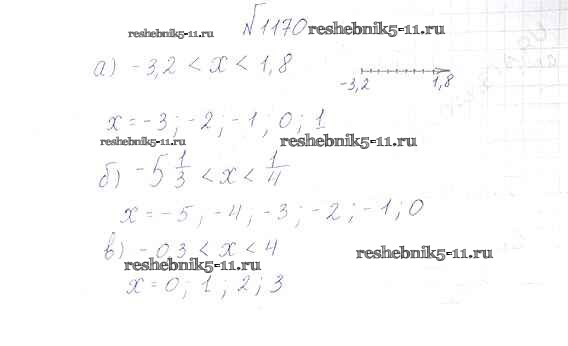 №1170
reshebnik5-11.ru reshebnik5-11.ru
а) -3,2 < x < 1,8
-3,2 1,8
x = -3; -2; -1; 0; 1
reshebnik5-11.ru reshebnik5-11.ru
б) -5 1/3 < x < 1/4
x = -5, -4; -3; -2; -1; 0
в) -0,3 < x < 4
reshebnik5-11.ru reshebnik5-11.ru
x = 0; 1; 2; 3